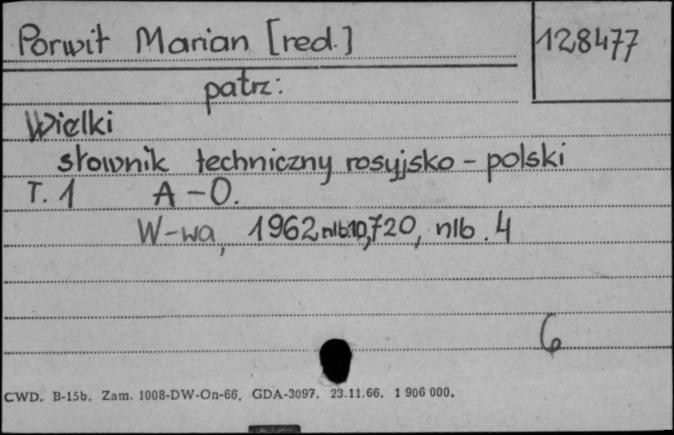 Porwit Marian [red.]
128477
patrz:
Wielki
słownik techniczny rosyjsko - polski
T. 1 A - O.
W-wa, 1962 nlb.10, 720, nlb. 4
6
CWD. B-15b. Zam. 1008-DW-On-66. GDA-3097. 23.11.66. 1 906 000.